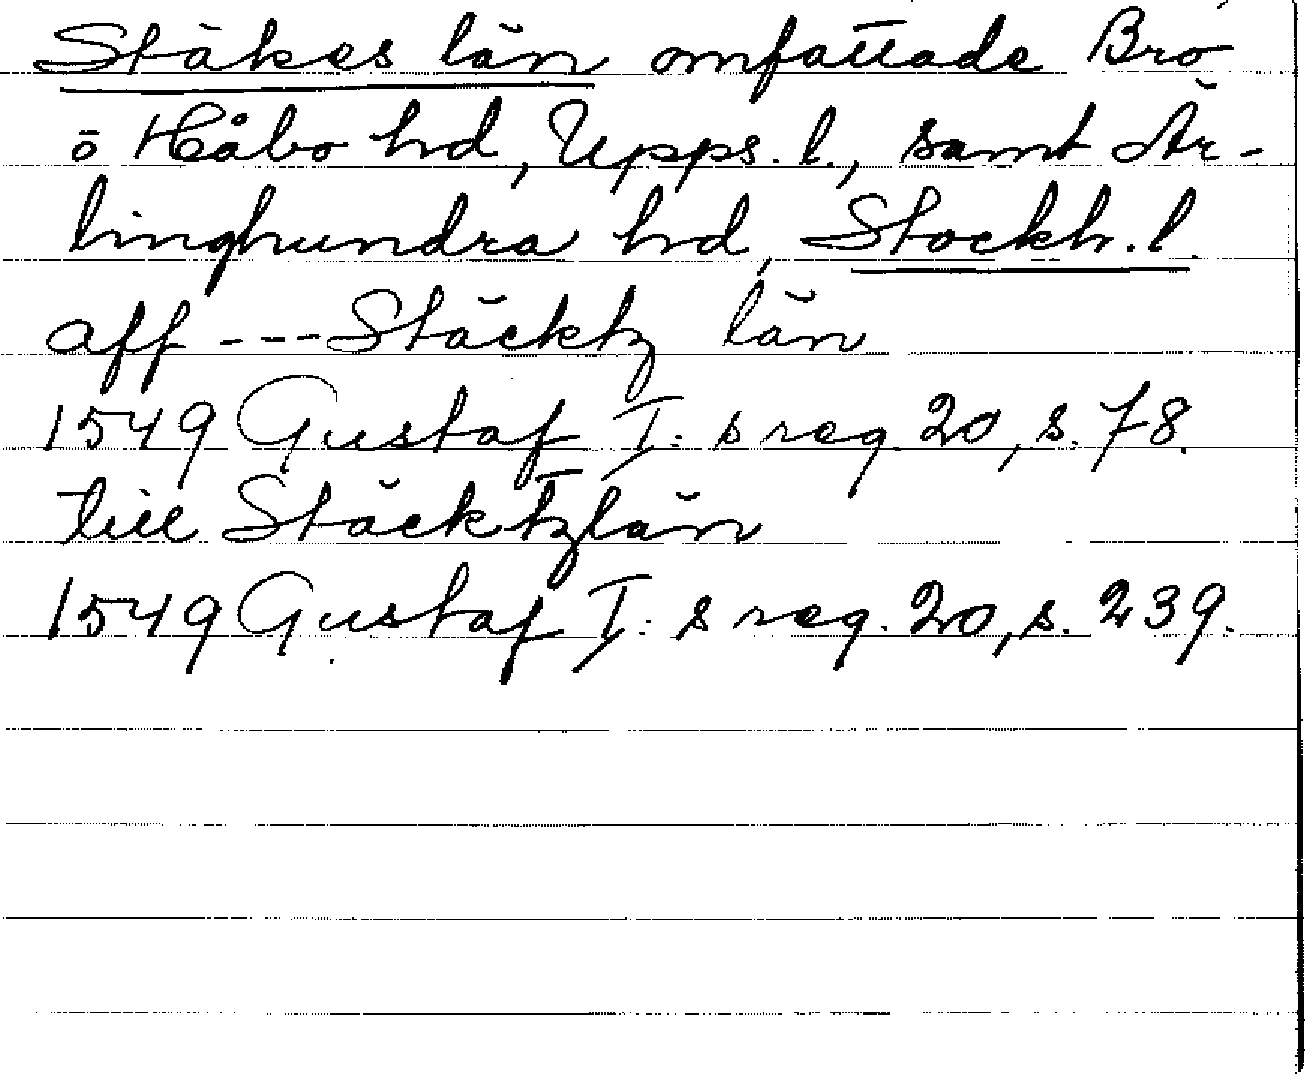 Stäkes län omfattade Bro
o Håbo hd, Upps. l., samt Är-
linghundra hd, Stockh. l.
aff --- Stäcktz län
1549 Gustaf I:s reg. 20, s. 78.
till Stäcktzlän
1549 Gustaf I:s reg. 20, s. 239.